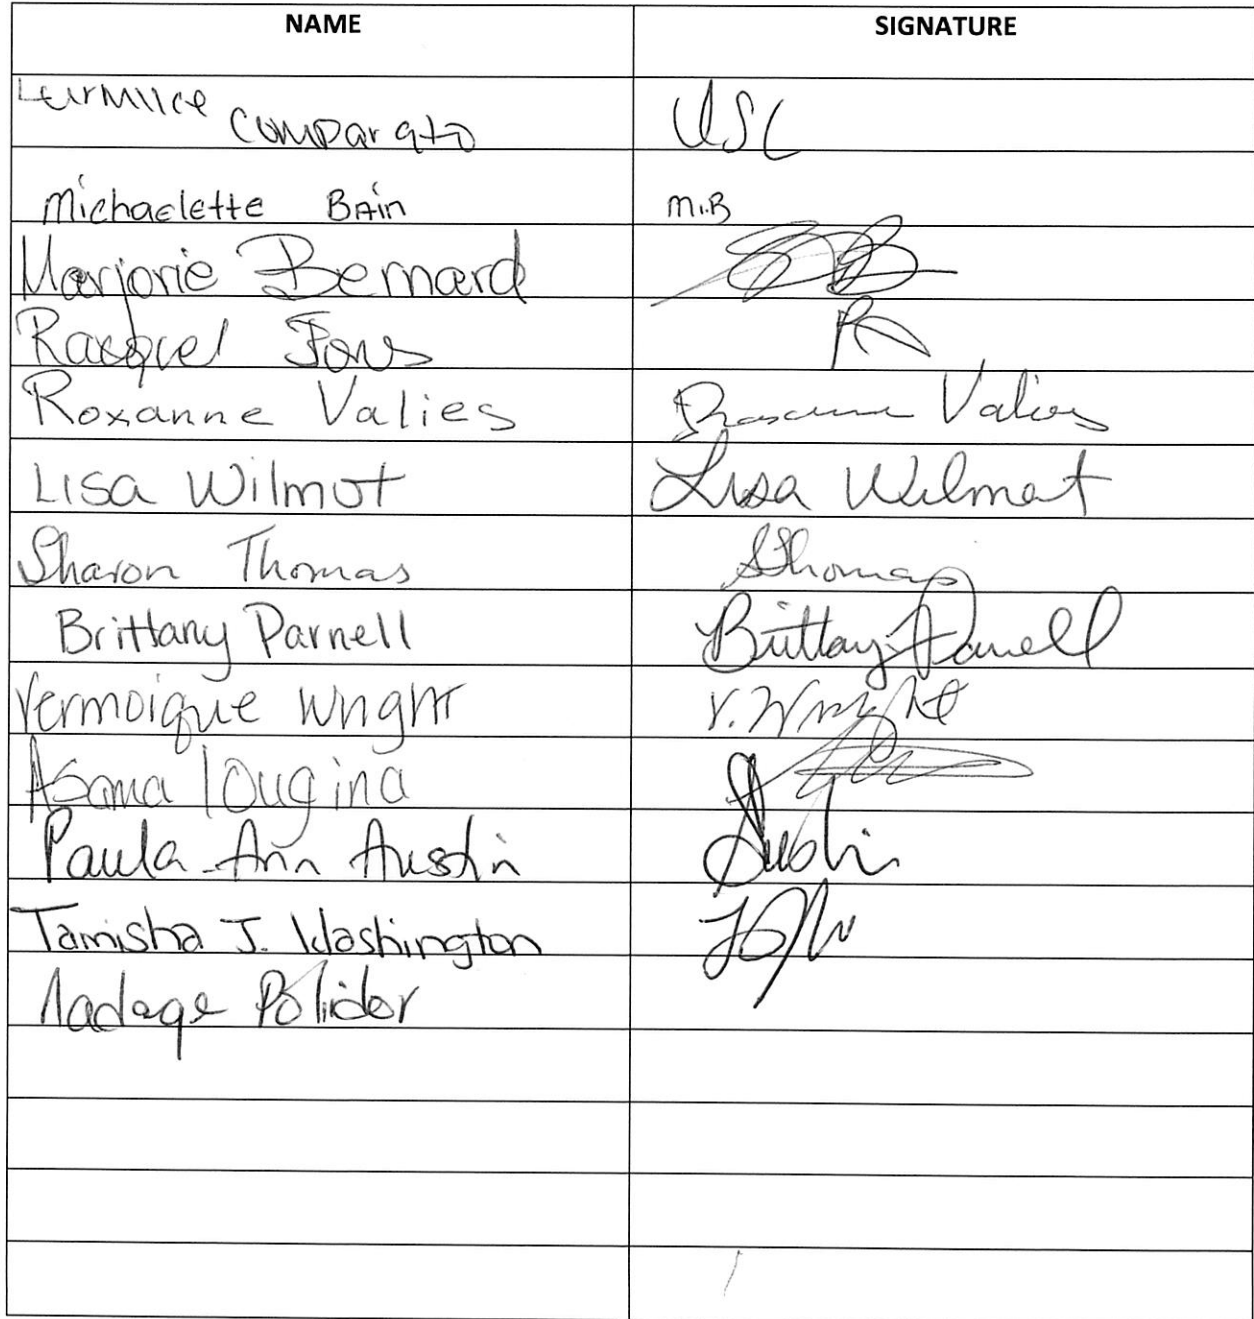 NAME SIGNATURE
Comparato
Michaelette BAin M.B
Marjorie Bernard
Racquel
Roxanne Valies Roxanne Valies
Lisa Wilmot Lisa Wilmot
Sharon Thomas SThomas
Brittany Parnell Brittany Parnell
Vermoique Wright V. Wright
Asama Lougina
Paula-Ann Austin Austin
Tamisha J. Washington
Nadege Polidor